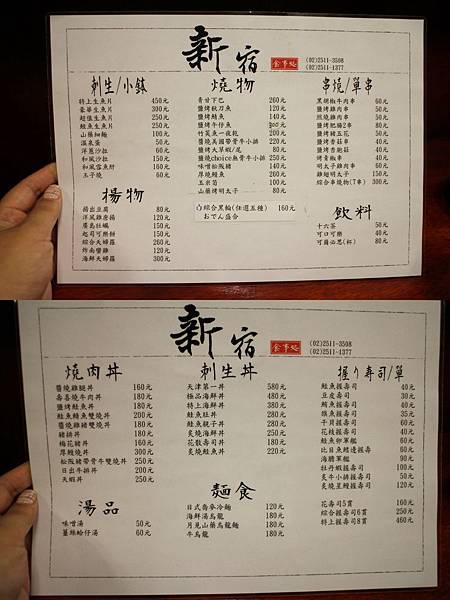 新宿
食事処
(02)2511-3508
(02)2511-1377
刺生/小缽
特上生魚片 450元
豪華生魚片 300元
超值生魚片 250元
鮭魚生魚片 250元
山藥細麵 100元
溫泉蛋 50元
洋蔥沙拉 60元
和風沙拉 150元
和風雪魚肝 160元
玉子燒 60元
揚物
揚出豆腐 80元
洋風雞唐揚 120元
廣島牡蠣 150元
起司可樂餅 150元
綜合天婦羅 260元
炸南蠻雞 120元
海鮮天婦羅 360元
燒物
青甘下巴 260元
鹽烤秋刀魚 120元
鹽烤鯖魚 140元
鹽烤午仔魚
竹筴魚一夜乾 200元
醬燒美國帶骨牛小排 220元
鹽烤大草蝦/尾 80元
鹽燒choice無骨牛小排 250元
味噌松阪豬 140元
厚燒鰻魚 260元
玉米筍 100元
山藥烤明太子 140元
綜合黑輪(任選五種) 160元
おでん盛合
串燒/單串
黑胡椒牛肉串 60元
鹽烤雞肉串 50元
照燒雞肉串 50元
鹽烤肥腸2串 80元
鹽烤豬五花 50元
鹽烤香菇串 40元
鹽烤杏鮑菇 40元
烤青椒串 40元
明太子雞肉串 60元
雞翅明太子 150元
綜合串燒物(7串) 300元
飲料
十六茶 50元
可口可樂 40元
可爾必思(杯) 80元
新宿
食事処
(02)2511-3508
(02)2511-1377
燒肉丼
醬燒雞腿丼 160元
壽喜燒牛肉丼 180元
鹽烤鮭魚丼 180元
鮭魚鯖魚雙燒丼 200元
醬燒雞豬雙燒丼 180元
豬排丼 180元
梅花豬丼 160元
厚鰻燒丼 300元
松阪豬帶骨牛雙燒丼 250元
日出牛排丼 200元
天蝦丼 250元
湯品
味噌湯 50元
薑絲蛤仔湯 60元
刺生丼
天津第一丼 580元
極品海鮮丼 480元
特上海鮮丼 380元
鮭魚肚丼 280元
鮭魚親子丼 280元
炙燒海鮮丼 250元
花散壽司丼 180元
炙燒鮭魚丼 250元
麵食
日式蕎麥冷麵 120元
海鮮湯烏龍 180元
月見山藥烏龍麵 180元
牛烏龍 180元
握り寿司/單
鮭魚握壽司 40元
豆皮壽司 30元
鮪魚握壽司 40元
旗魚握壽司 35元
干貝握壽司 60元
花枝握壽司 40元
鮭魚卵軍艦 60元
比目魚鰭邊握壽司 60元
海膽軍艦 90元
牡丹蝦握壽司 100元
炙牛小排握壽司 50元
炙燒星鰻握壽司 120元
花壽司5貫 160元
綜合握壽司6貫 250元
特上握壽司8貫 460元